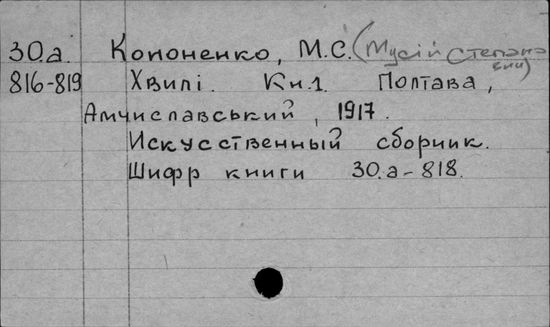 30.а. Кононенко, М.С. (Мусій Степанович)
816-819 Хвилі. Кн.1. Полтава,
Амчиславський, 1917.
Искусственный сборник.
Шифр книги 30.а-818.